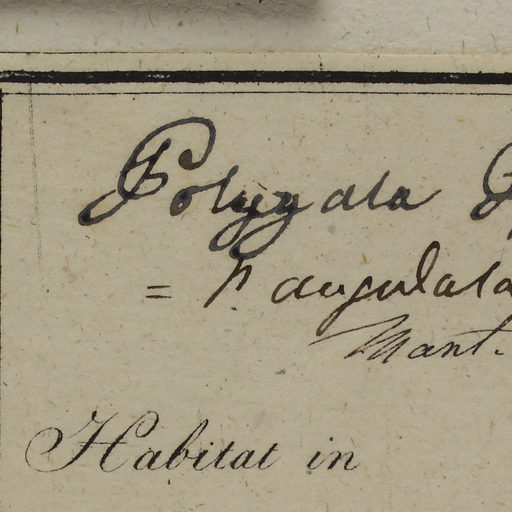 Polygala
= P. angulata
Mant.
Habitat in